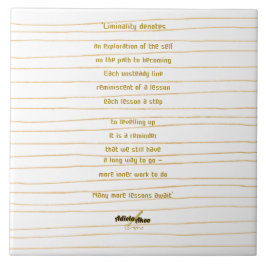 'Liminality denotes
An exploration of the self
on the path to becoming
Each unsteady line
reminiscent of a lesson
each lesson a step
to levelling up
It is a reminder
that we still have
a long way to go –
more inner work to do
Many more lessons await'